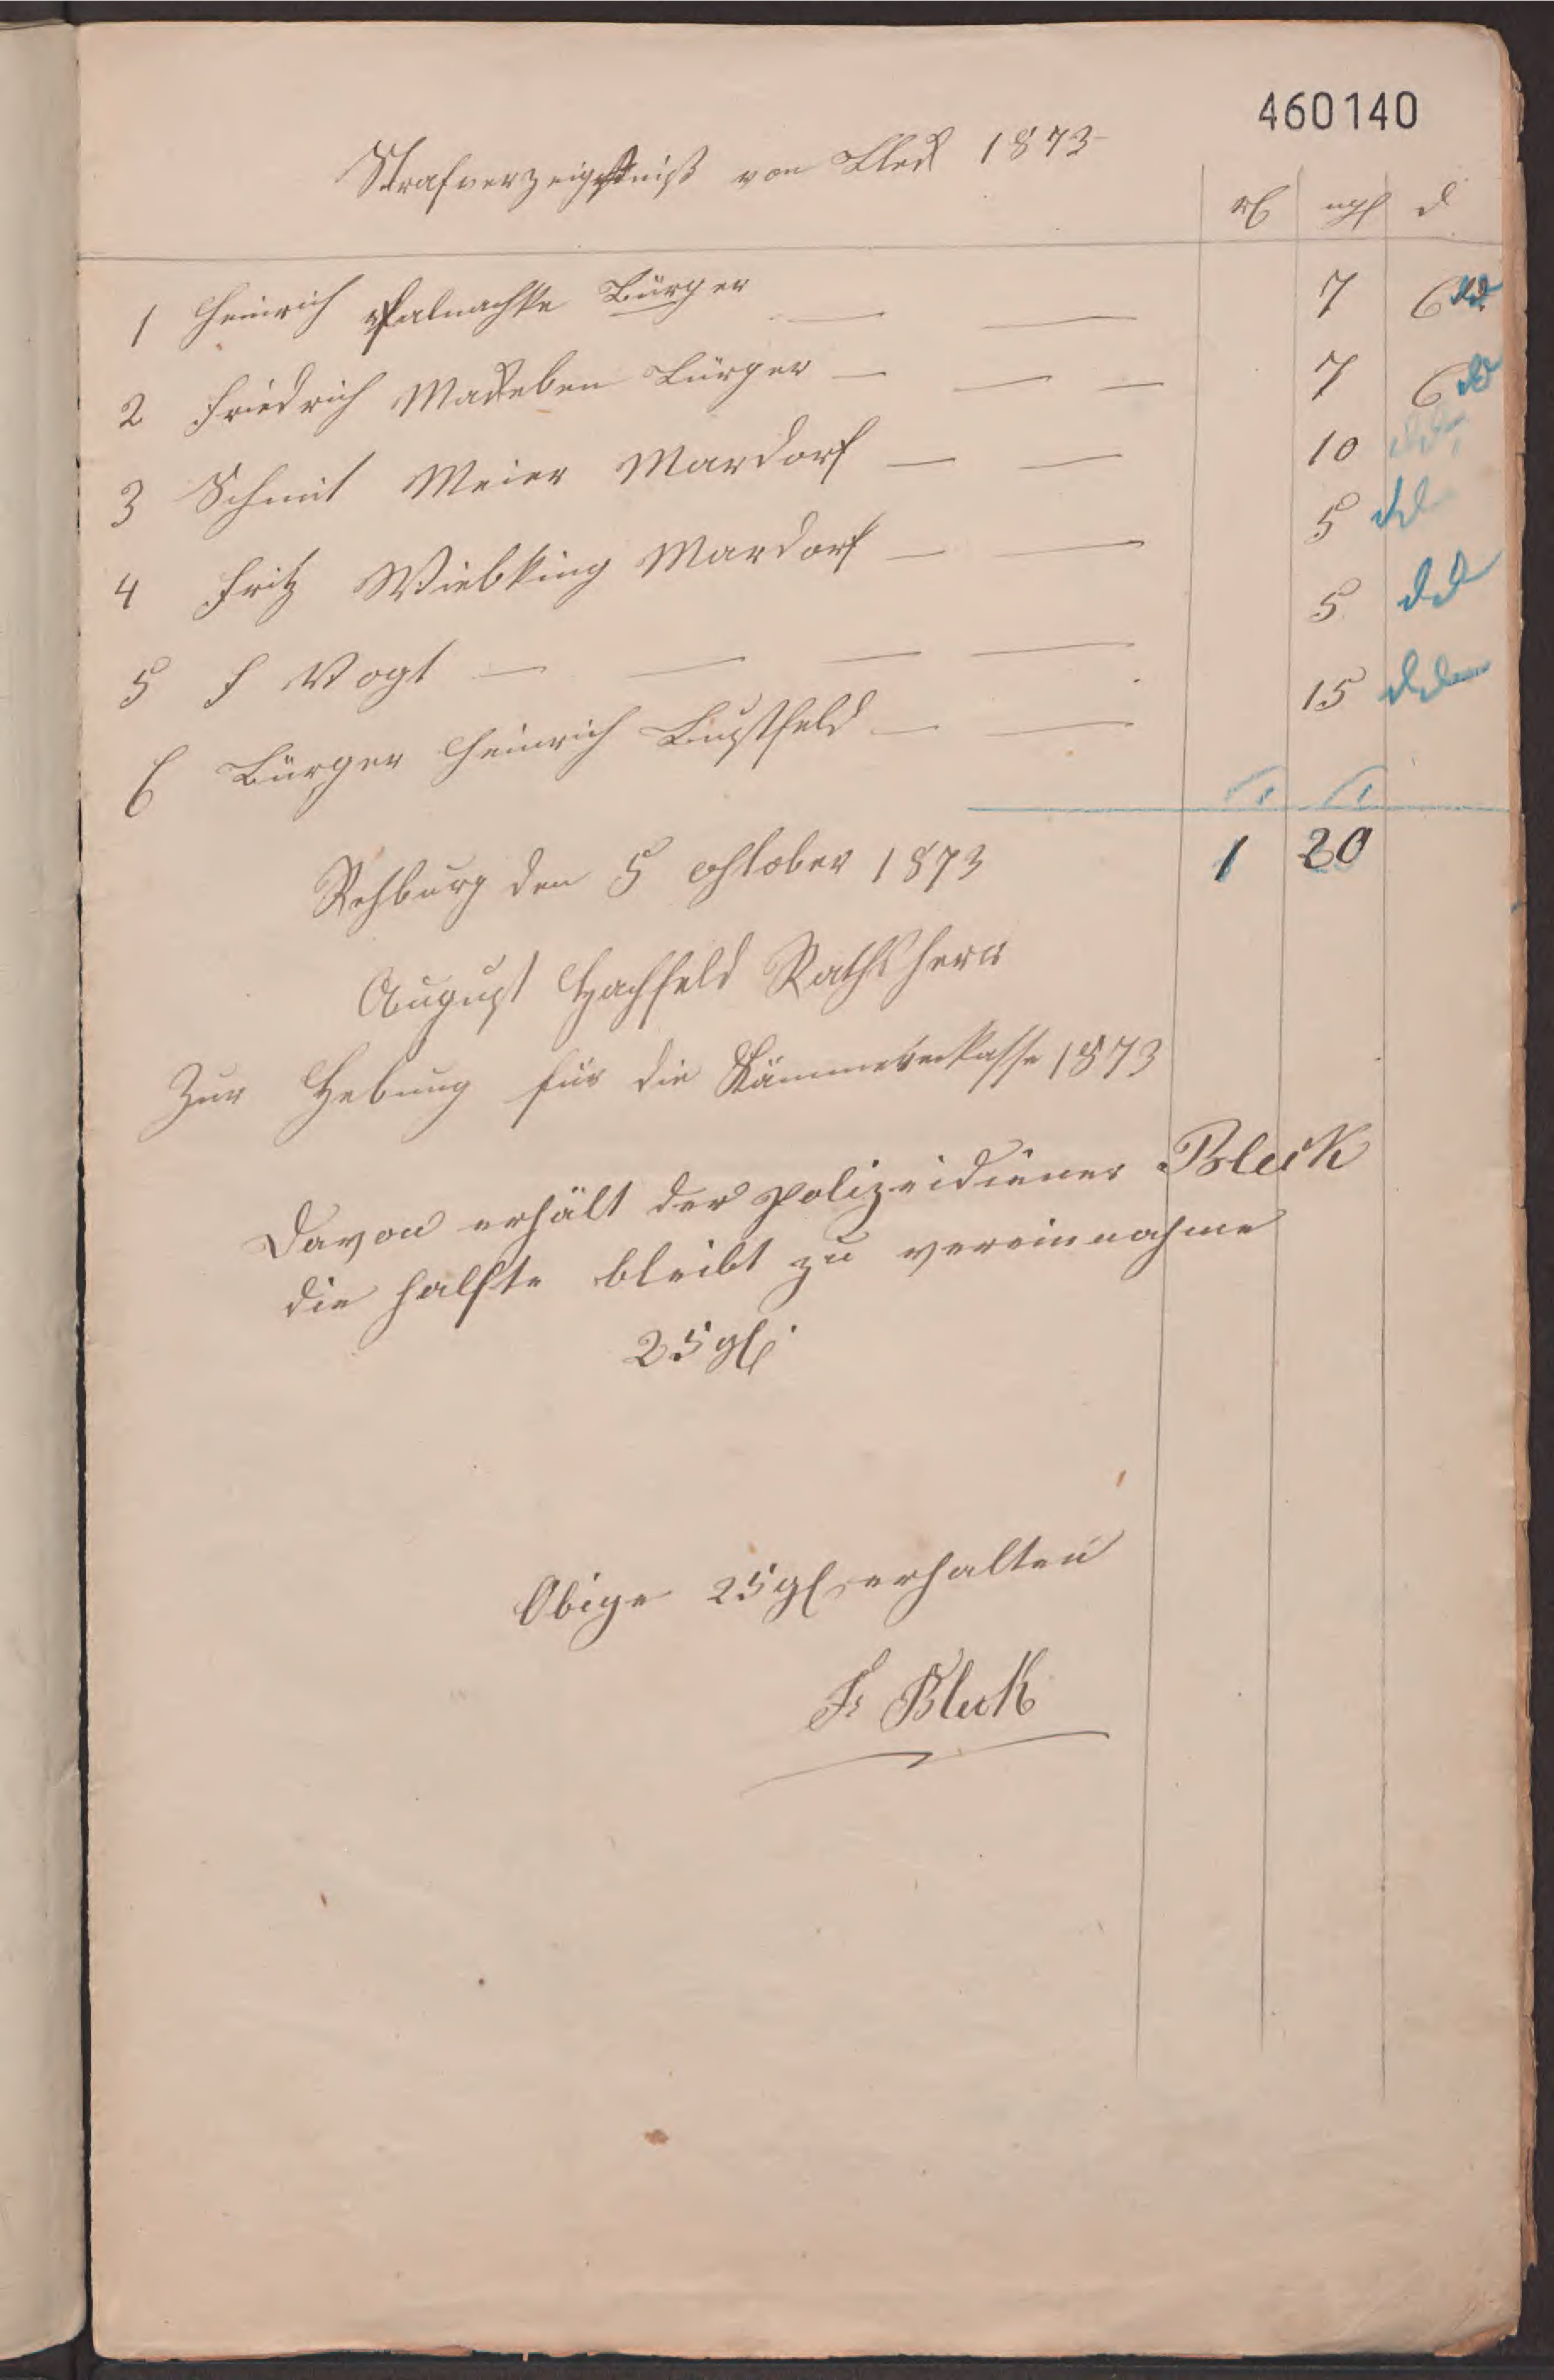 460140
Strafverzeichniß von Bleck 1873
rf ngl d
1 Heinrich Palnachke Bürger — — 7 6
2 Friedrich Maseben Bürger — — — 7 6
3 Schmit Meier Mardorf — — 10
4 Fritz Wiebking Mardorf — — 5
5 F Vogt — — — — 5
6 Bürger Heinrich Bustfeld — — 15
1 20
Rehburg den 5 october 1873
August Hachfeld Rathsherr
Zur Hebung für die Kämmereikasse 1873
Davon erhält der polizeidiener Bleck
die halfte bleibt zu vereinnahme
25 gl
Obige 25 gl erhalten
Fr Bleck